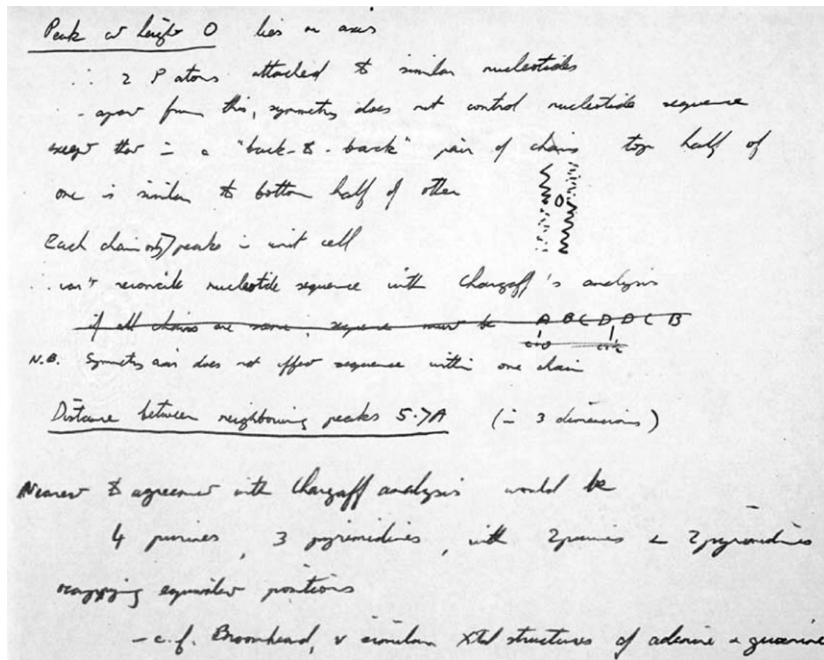 Peak at height O lies on axis
∴ 2 P atoms attached to similar nucleotides
- apart from this, symmetry does not control nucleotide sequence
except that in a "back-to-back" pair of chains top half of
one is similar to bottom half of other
O
Each chain 7 peaks in unit cell
∴ can't reconcile nucleotide sequence with Chargaff's analysis
if all chains are same, sequence must be A B C D D C B
N.B. Symmetry axis does not affect sequence within one chain
Distance between neighbouring peaks 5.7A (in 3 dimensions)
Nearest to agreement with Chargaff analysis would be
4 purines, 3 pyrimidines, with 2 purines + 2 pyrimidines
occupying equivalent positions
- c.f. Broomhead, v similar Xtal structures of adenine + guanine